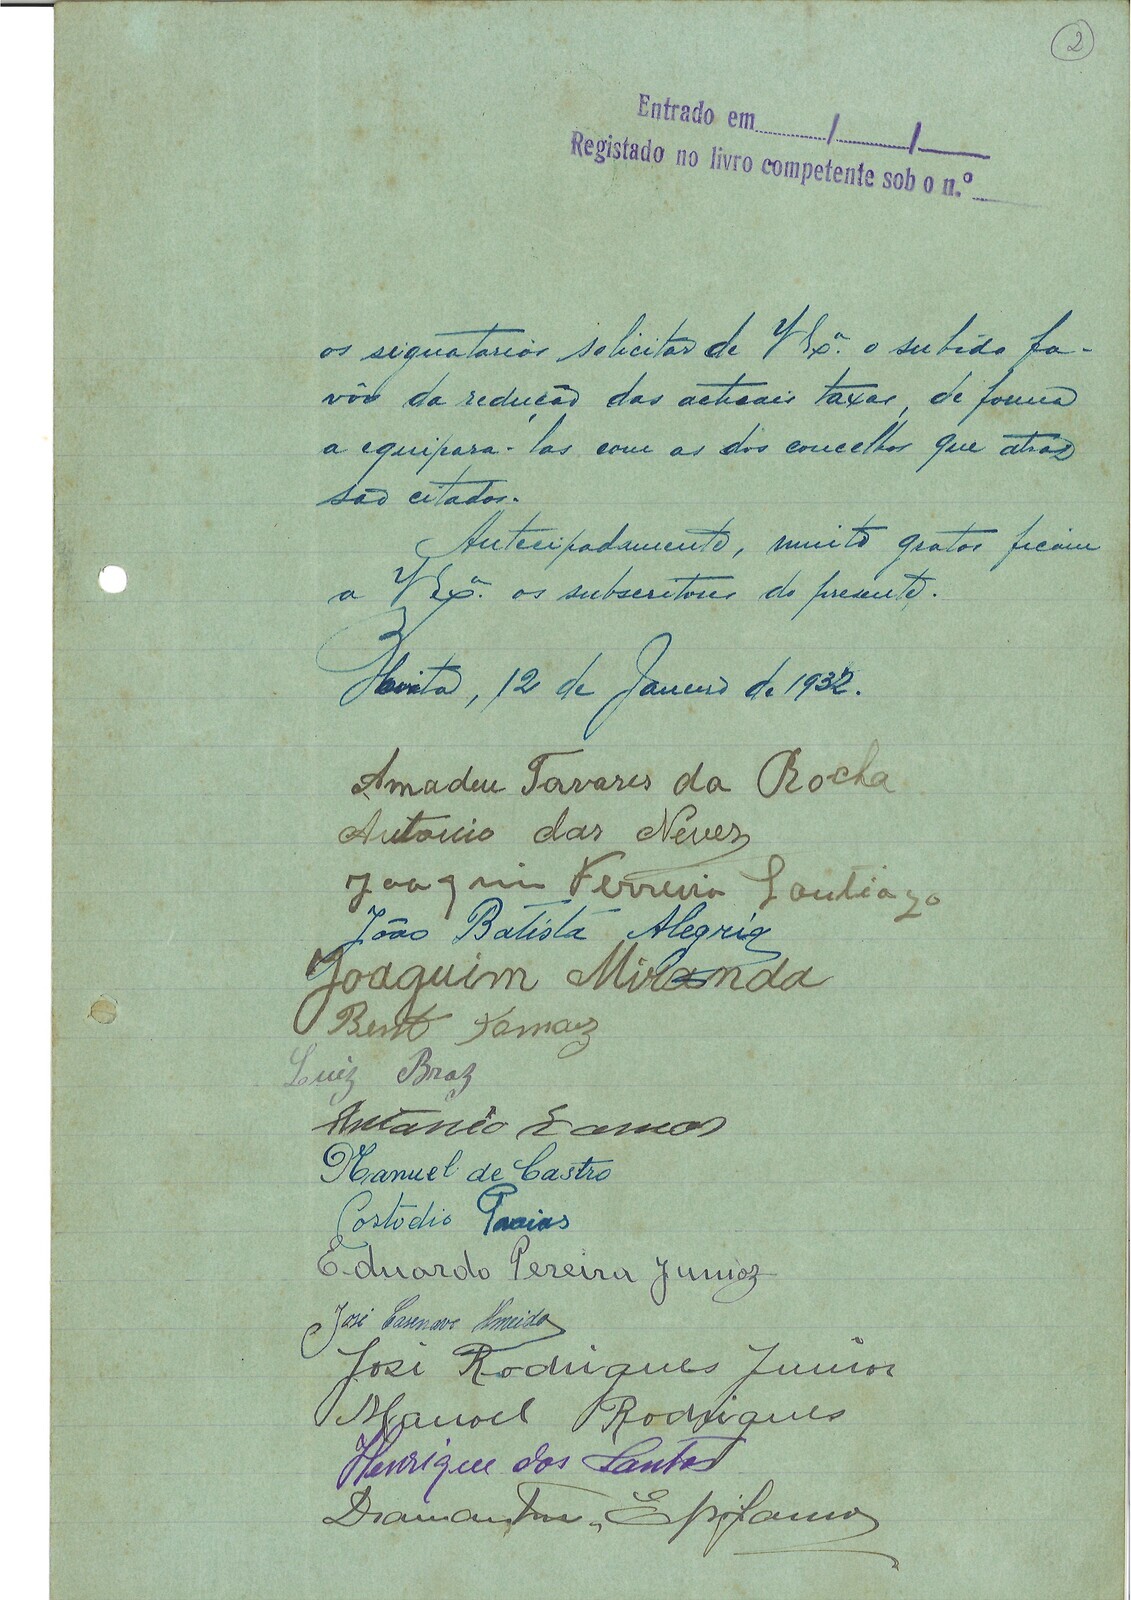 2
Entrado em / /
Registado no livro competente sob o n.º
os signatarios solicitar de V Exª. o subido fa-
vôr da redução das actuais taxas, de forma
a equipara-las com as dos concelhos que atraz
são citados.
Antecipadamente, muito gratos ficam
a V Exª. os subscritores do presente.
Moita, 12 de Janeiro de 1932.
Amadeu Tavares da Rocha
Antonio das Neves
Joaquim Ferreira Santiago
João Batista Alegria
Joaquim Miranda
Bent
Luiz Braz
António Ramos
Manuel de Castro
Custodio
Eduardo Pereira Junior
José Almeida
José Rodrigues Junior
Manoel Rodrigues
Henrique dos Santos
Diamantino Epifanio